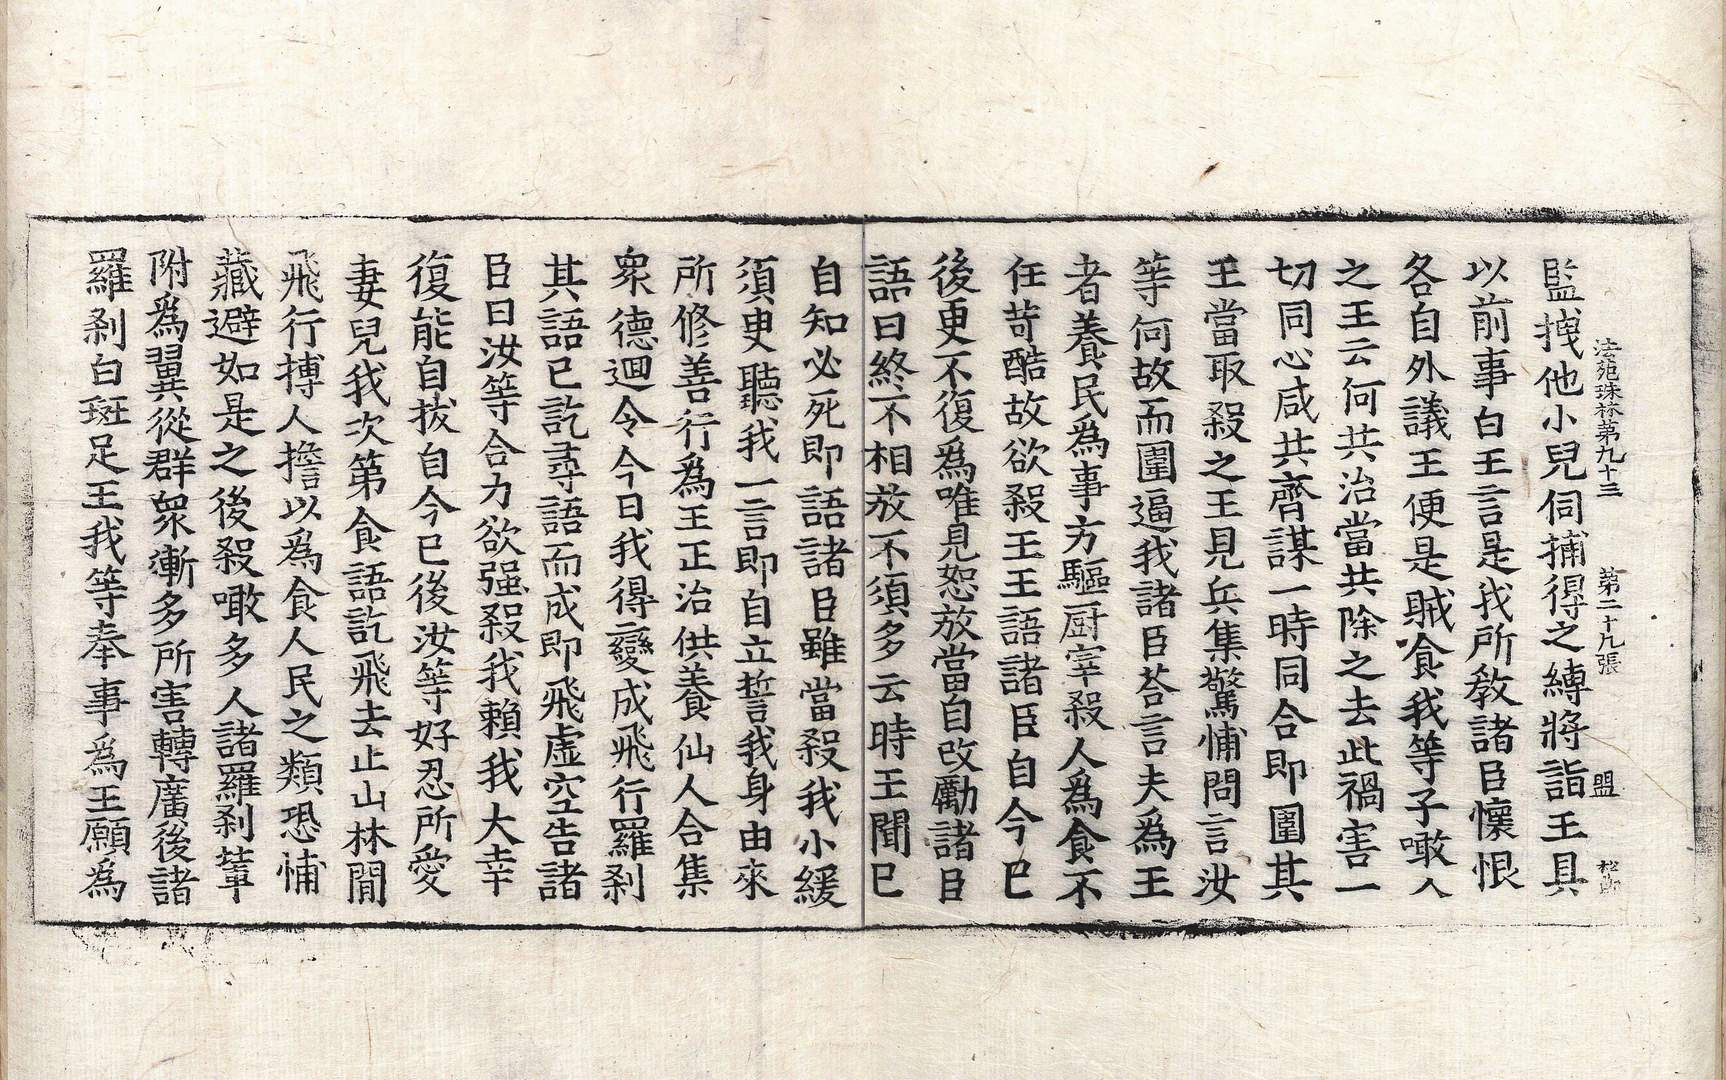 法苑珠林第九十三 第二十九張 盟
監拽他小兒伺捕得之縛將詣王具
以前事白王言是我所教諸臣懷恨
各自外議王便是賊食我等子噉人
之王云何共治當共除之去此禍害一
切同心咸共齊謀一時同合即圍其
王當取殺之王見兵集驚怖問言汝
等何故而圍逼我諸臣荅言夫為王
者養民為事方驅厨宰殺人為食不
任苛酷故欲殺王王語諸臣自今已
後更不復為唯見恕放當自改勵諸臣
語曰終不相放不須多云時王聞已
自知必死即語諸臣雖當殺我小緩
須㬰聽我一言即自立誓我身由來
所修善行為王正治供養仙人合集
衆德迴令今日我得變成飛行羅剎
其語已訖尋語而成即飛虛空告諸
臣曰汝等合力欲强殺我賴我大幸
復能自拔自今已後汝等好忍所愛
妻兒我次第食語訖飛去止山林間
飛行搏人擔以為食人民之類恐怖
藏避如是之後殺噉多人諸羅剎輩
附為翼從群衆漸多所害轉廣後諸
羅剎白斑足王我等奉事為王願為